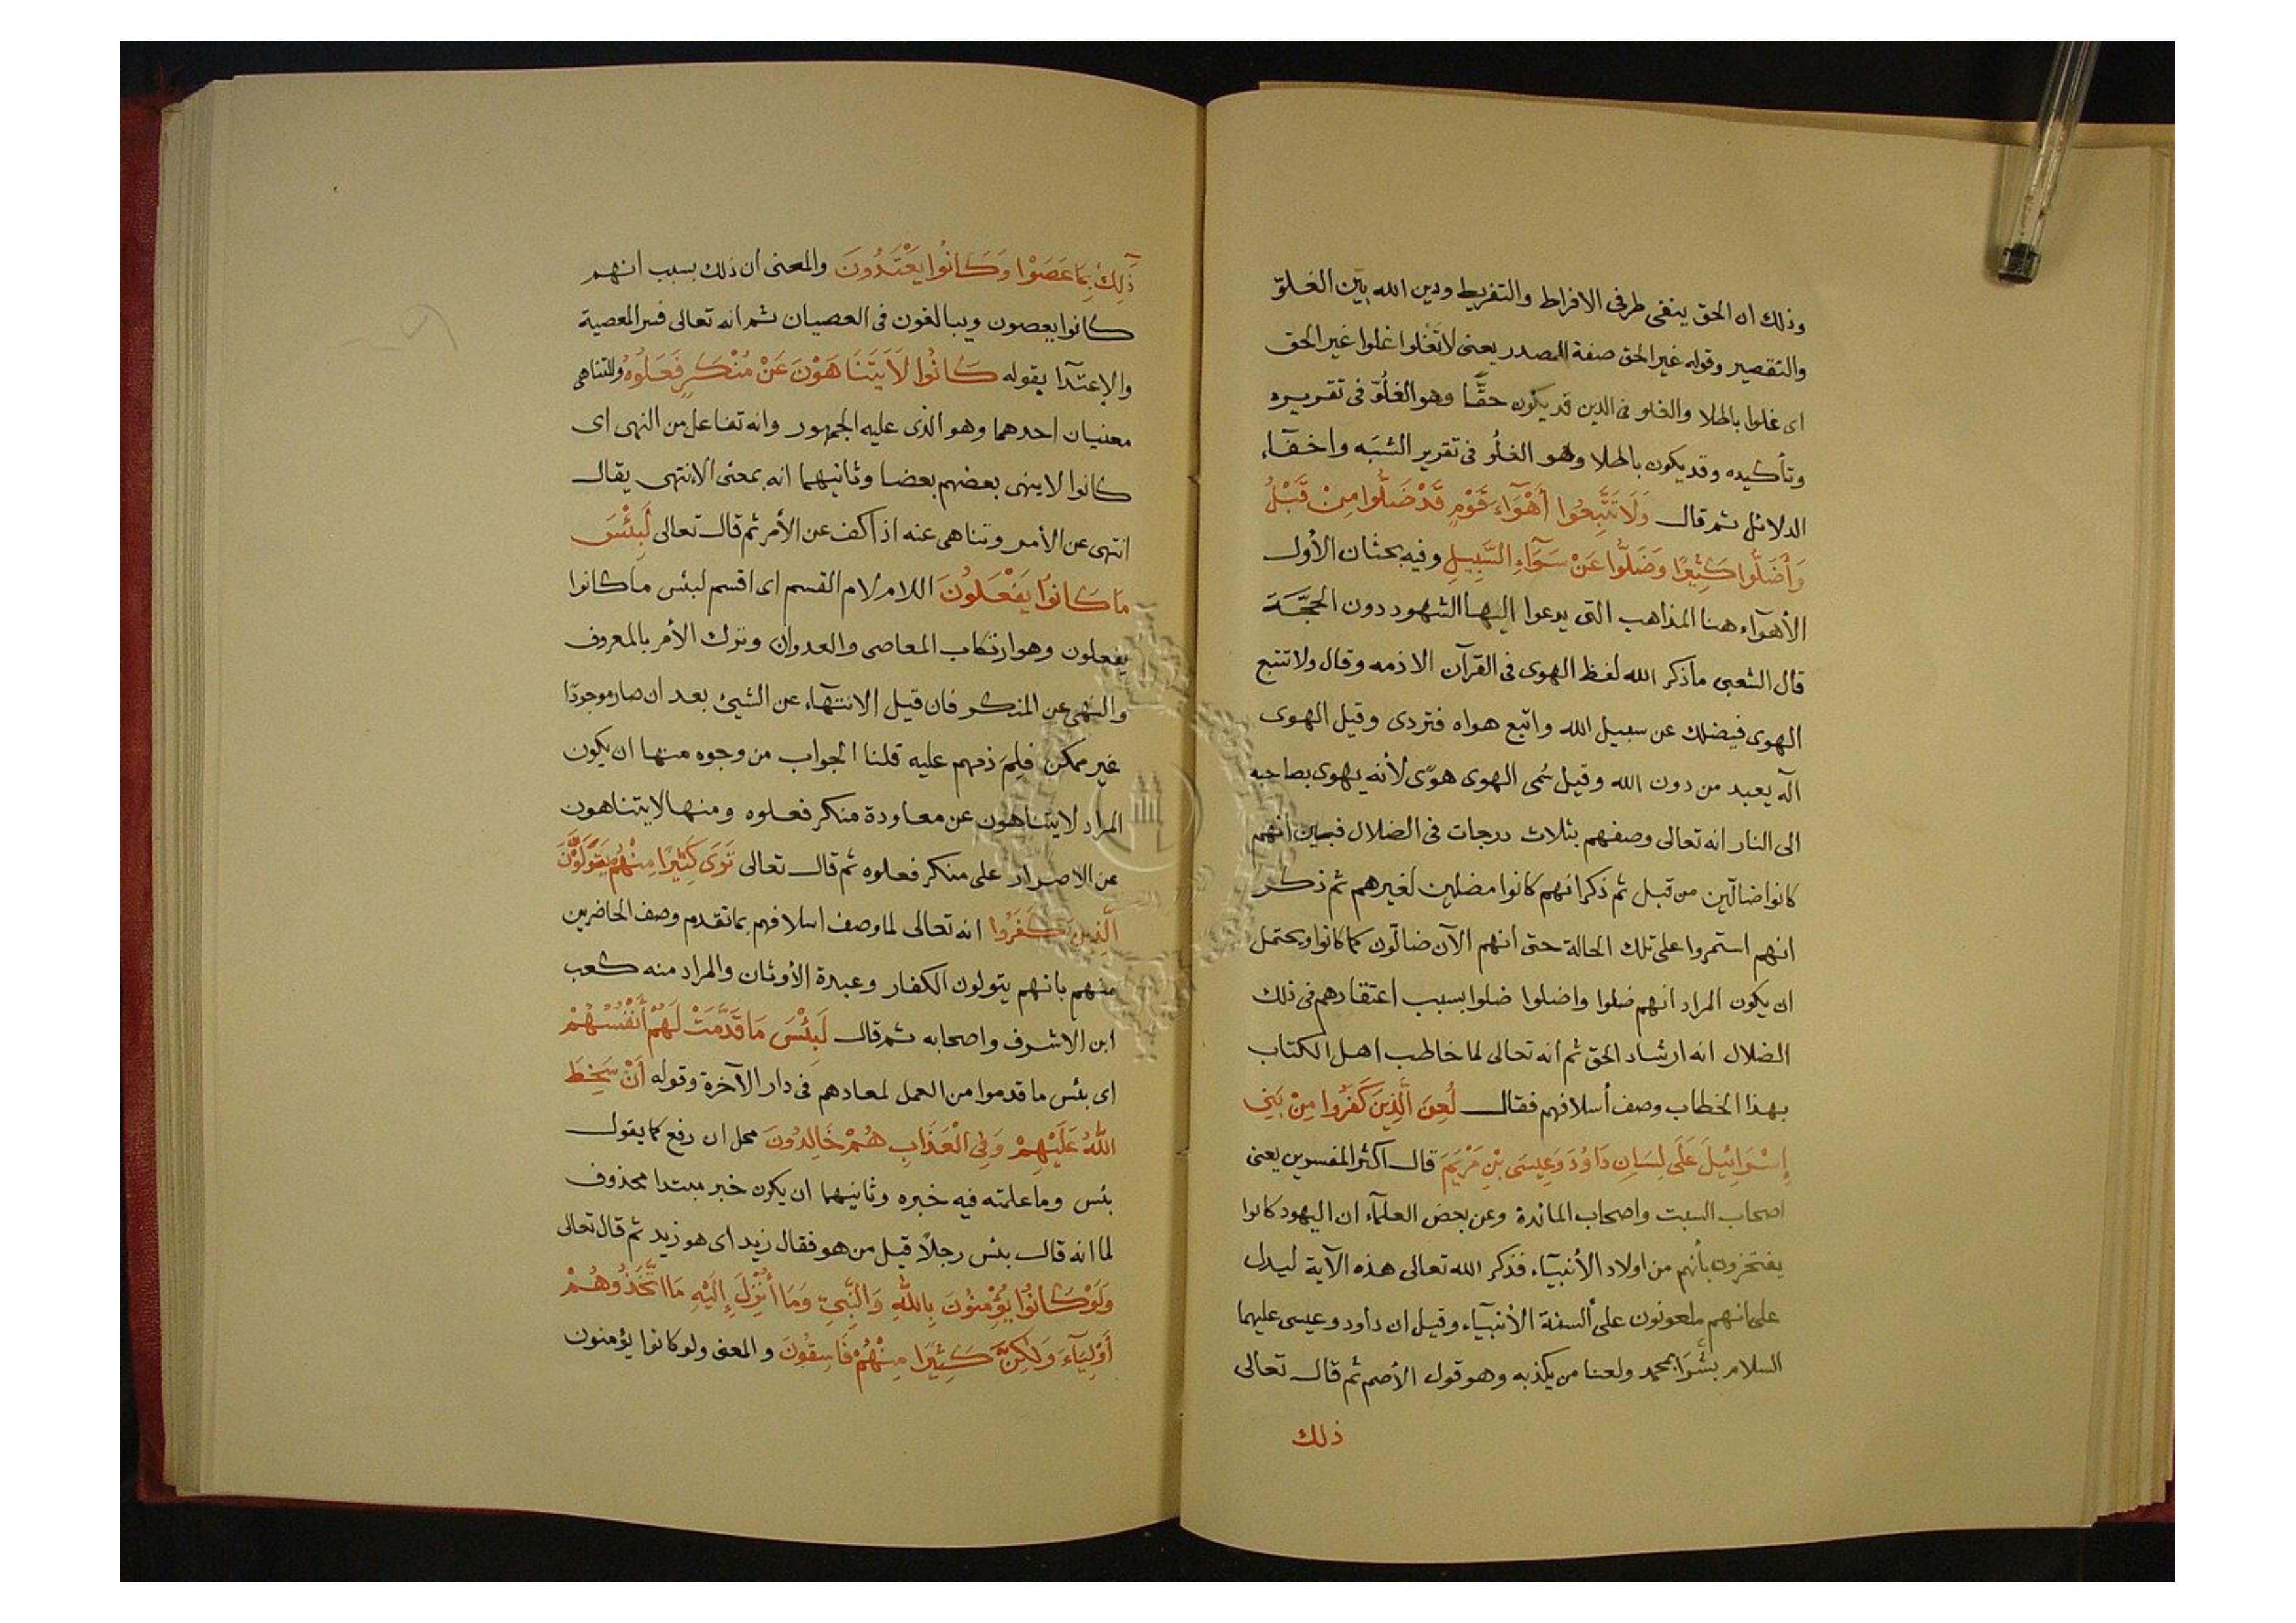 وذلك ان الحق ينفى طرفى الافراط والتفريط ودين الله بين الغلوّ
والتقصير وقوله غير الحق صفة المصدر يعنى لا تَغْلوا غلوا غير الحق
اى غلوا باطلا والغلو فى الدين قد يكون حقَّا وهو الغُلُوّ فى تقريره
وتأكيده وقد يكون باطلا وهو الغلُو فى تقرير الشبَه واخفآء
الدلائل ثم قال وَلَا تَتَّبِعُوا أَهْوَآءَ قَوْمٍ قَدْ ضَلُّوا مِنْ قَبْلُ
وَأَضَلُّوا كَثِيرًا وَضَلُّوا عَنْ سَوَآءِ السَّبِيلِ وفيه بحثان الأول
الأهوآء هنا المذاهب التى يدعوا اليها الشهود دون الحجَّـة
قال الشعبى ما ذكر الله لفظ الهوى فى القرآن الا ذمه وقال ولا تتبع
الهوى فيضلك عن سبيل الله واتبع هواه فتردى وقيل الهوى
آله يعبد من دون الله وقيل سُمى الهوى هوًى لأنه يهوى بصاحبه
الى النار انه تعالى وصفهم بثلاث درجات فى الضلال فبين أنهم
كانوا ضالّين من قبل ثم ذكر انهم كانوا مضلين لغيرهم ثم ذكر
انهم استمروا على تلك الحالة حتى أنهم الآن ضالّون كما كانوا ويحتمل
ان يكون المراد انهم ضلوا واضلوا ضلوا بسبب اعتقادهم فى ذلك
الضلال انه ارشاد الحق ثم أنه تعالى لما خاطب اهل الكتاب
بهذا الخطاب وصف أسلافهم فقال لُعِنَ الَّذِينَ كَفَرُوا مِنْ بَنِي
إِسْرَائِيلَ عَلَى لِسَانِ دَاوُدَ وَعِيسَى بْنِ مَرْيَمَ قال اكثر المفسرين يعنى
اصحاب السبت واصحاب المائدة وعن بعض العلمآء ان اليهود كانوا
يفتخرون بأنهم من اولاد الأنبيآء فذكر الله تعالى هذه الآية ليدل
على انهم ملعونون على ألسنة الأنبيآء وقيل ان داود وعيسى عليهما
السلام بشَّرا بمحمد ولعنا من يكذبه وهو قول الأصم ثم قال تعالى
ذلك
ذَٰلِكَ بِمَا عَصَوْا وَكَانُوا يَعْتَدُونَ والمعنى ان ذلك بسبب انهم
كانوا يعصون ويبالغون فى العصيان ثم انه تعالى فسر المعصية
والاعتدآ بقوله كَانُوا لَا يَتَنَاهَوْنَ عَنْ مُنْكَرٍ فَعَلُوهُ وللتناهى
معنيان احدهما وهو الذى عليه الجمهور وانه تفاعل من النهى اى
كانوا لا ينهى بعضهم بعضا وثانيهما انه بمعنى الانتهى يقال
انتهى عن الأمر وتناهى عنه اذا كف عن الأمر ثم قال تعالى لَبِئْسَ
مَا كَانُوا يَفْعَلُونَ اللام لام القسم اى اقسم لبئس ما كانوا
يفعلون وهو ارتكاب المعاصى والعدوان وترك الأمر بالمعروف
والنهى عن المنكر فان قيل الانتهآء عن الشيئ بعد ان صار موجودًا
غير ممكن فلِمَ ذمهم عليه قلنا الجواب من وجوه منها ان يكون
المراد لا يتناهون عن معاودة منكر فعلوه ومنها لا يتناهون
عن الاصرار على منكر فعلوه ثم قال تعالى تَرَى كَثِيرًا مِنْهُمْ يَتَوَلَّوْنَ
الَّذِينَ كَفَرُوا انه تعالى لما وصف اسلافهم بما تقدم وصف الحاضرين
منهم بانهم يتولون الكفار وعبدة الأوثان والمراد منه كعب
ابن الاشرف واصحابه ثم قال لَبِئْسَ مَا قَدَّمَتْ لَهُمْ أَنْفُسُهُمْ
اى بئس ما قدموا من العمل لمعادهم فى دار الآخرة وقوله أَنْ سَخِطَ
اللهُ عَلَيْهِمْ وَفِي الْعَذَابِ هُمْ خَالِدُونَ محل ان رفع كما يقول
بئس وما علمته فيه خبره وثانيهما ان يكون خبر مبتدا محذوف
لما انه قال بئس رجلًا قيل من هو فقال زيد اى هو زيد ثم قال تعالى
وَلَوْ كَانُوا يُؤْمِنُونَ بِاللهِ وَالنَّبِيِّ وَمَا أُنْزِلَ إِلَيْهِ مَا اتَّخَذُوهُمْ
أَوْلِيَآءَ وَلٰكِنَّ كَثِيرًا مِنْهُمْ فَاسِقُونَ والمعنى ولو كانوا يؤمنون